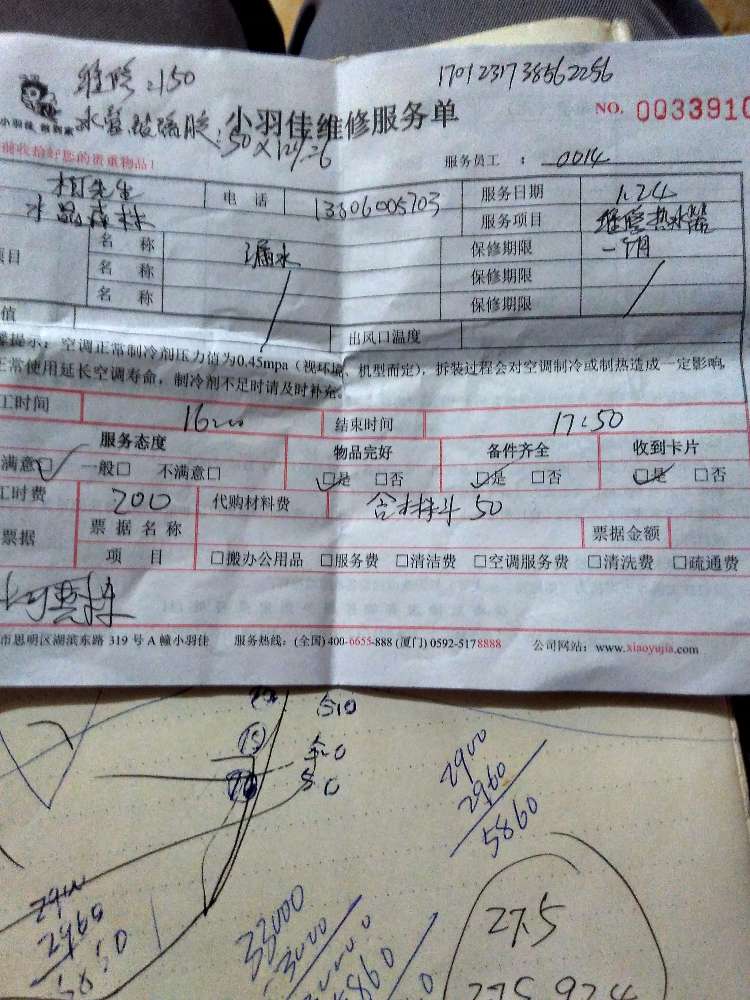 维修:150
1701231738562256
水管玻璃胶:50
小羽佳维修服务单
NO. 0033910
前收拾好您的贵重物品!
服务员工 : 0014
先生 电话 服务日期 1.24
水晶森林 服务项目 维修热水器
项目 名称 漏水 保修期限 一个月
名称 保修期限
名称 保修期限
值 出风口温度
提示:空调正常制冷剂压力值为0.45mpa(视环境、机型而定),拆装过程会对空调制冷或制热造成一定影响,
正常使用延长空调寿命,制冷剂不足时请及时补充。
工时间 16:00 结束时间 17:50
服务态度 物品完好 备件齐全 收到卡片
满意□ 一般□ 不满意□ □是 □否 □是 □否 □是 □否
工时费 200 代购材料费 含材料 50
票据 票据名称 票据金额
项目 □搬办公用品 □服务费 □清洁费 □空调服务费 □清洗费 □疏通费
市思明区湖滨东路 319 号 A 幢小羽佳 服务热线:(全国)400-6655-888 (厦门) 0592-5178888 公司网站:www.xiaoyujia.com
2900
2960
5860
2900
2960
33000
3000
27.5